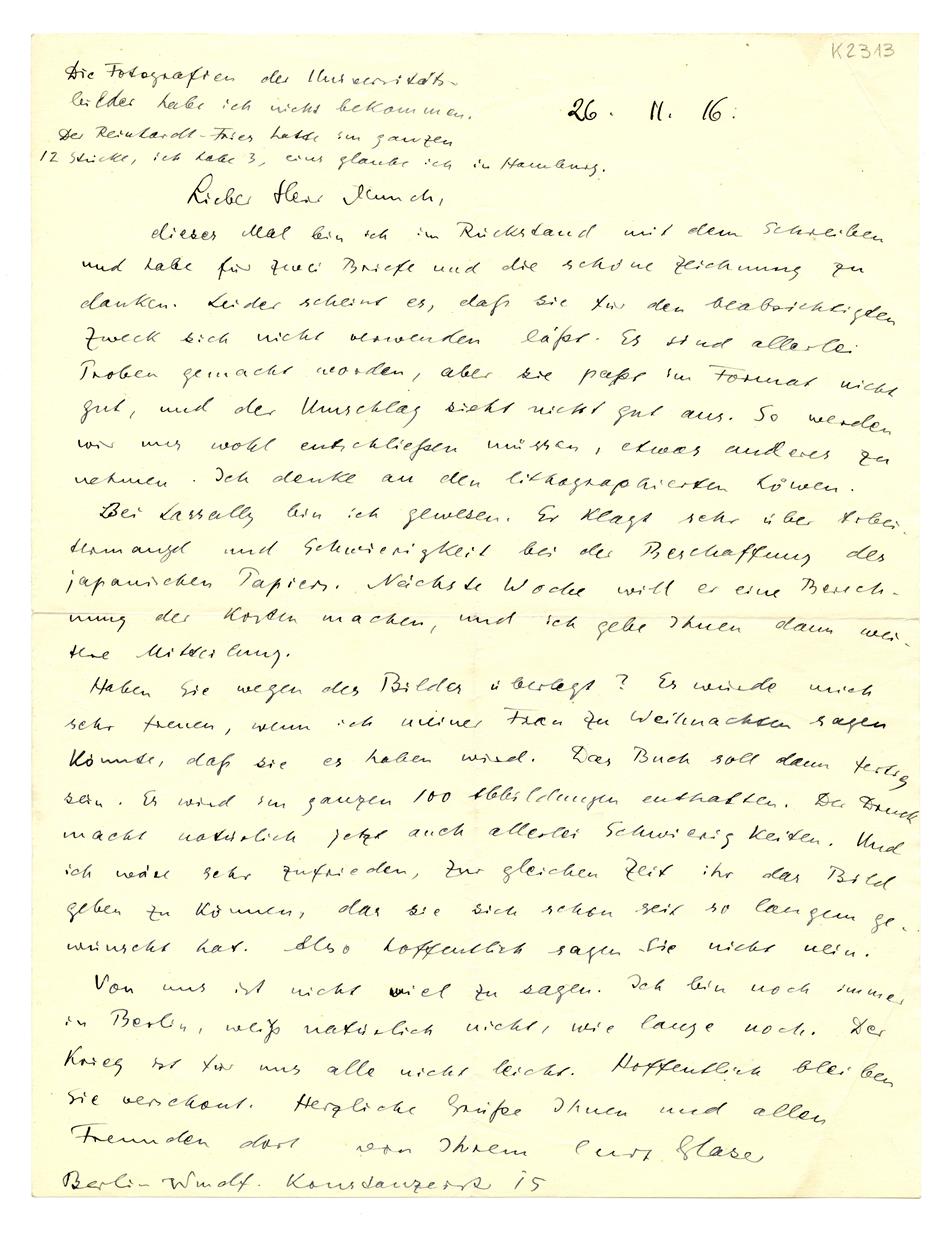 K2313
Die Fotografien der Universitäts-
bilder habe ich nicht bekommen.
Der Reinhardt-Fries hatte im ganzen
12 Stücke, ich habe 3, eins glaube ich in Hamburg.
26. 11. 16.
Lieber Herr Munch,
dieses Mal bin ich im Rückstand mit dem Schreiben
und habe für zwei Briefe und die schöne Zeichnung zu
danken. Leider scheint es, daß sie für den beabsichtigten
Zweck sich nicht verwenden läßt. Es sind allerlei
Proben gemacht worden, aber sie paßt im Format nicht
gut, und der Umschlag sieht nicht gut aus. So werden
wir uns wohl entschließen müssen, etwas anderes zu
nehmen. Ich denke an den lithographierten Löwen.
Bei Lassally bin ich gewesen. Er klagt sehr über Arbei-
termangel und Schwierigkeit bei der Beschaffung des
japanischen Papiers. Nächste Woche will er eine Berech-
nung der Kosten machen, und ich gebe Ihnen dann wei-
tere Mitteilung.
Haben Sie wegen des Bildes überlegt? Es würde mich
sehr freuen, wenn ich meiner Frau zu Weihnachten sagen
könnte, daß sie es haben wird. Das Buch soll dann fertig
sein. Es wird im ganzen 100 Abbildungen enthalten. Der Druck
macht natürlich jetzt auch allerlei Schwierigkeiten. Und
ich wäre sehr zufrieden, zur gleichen Zeit ihr das Bild
geben zu können, das sie sich schon seit so langem ge-
wünscht hat. Also hoffentlich sagen Sie nicht nein.
Von uns ist nicht viel zu sagen. Ich bin noch immer
in Berlin, weiß natürlich nicht, wie lange noch. Der
Krieg ist für uns alle nicht leicht. Hoffentlich bleiben
Sie verschont. Herzliche Grüße Ihnen und allen
Freunden dort von Ihrem Curt Glaser
Berlin-Wmdf. Konstanzerstr 15